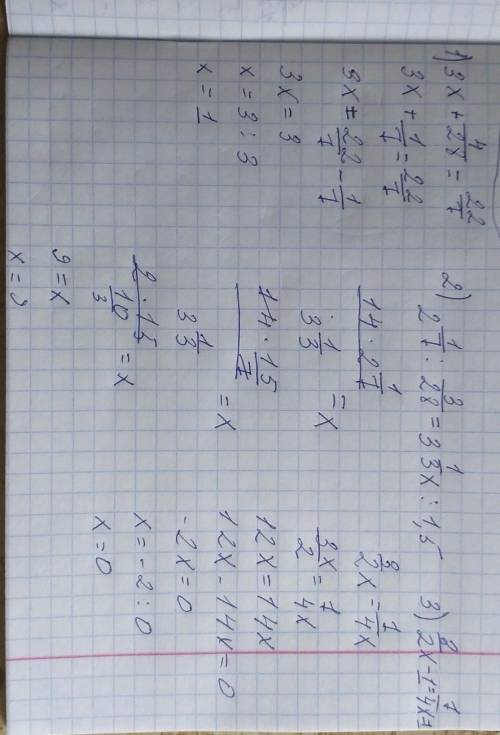 1) 3x + 4/28 = 22/7
3x + 1/7 = 22/7
3x = 22/7 - 1/7
3x = 3
x = 3 : 3
x = 1
2) 2 1/7 : 3/28 = 3 1/3 x : 1,5
14 · 2 1/7
: 3 1/3 = x
14 · 15/7
3 1/3 = x
2 · 15
10/3 = x
9 = x
x = 9
3/2x = 7/4x
3x/2 = 7/4x
12x = 14x
12x - 14x = 0
-2x = 0
x = -2 : 0
x = 0